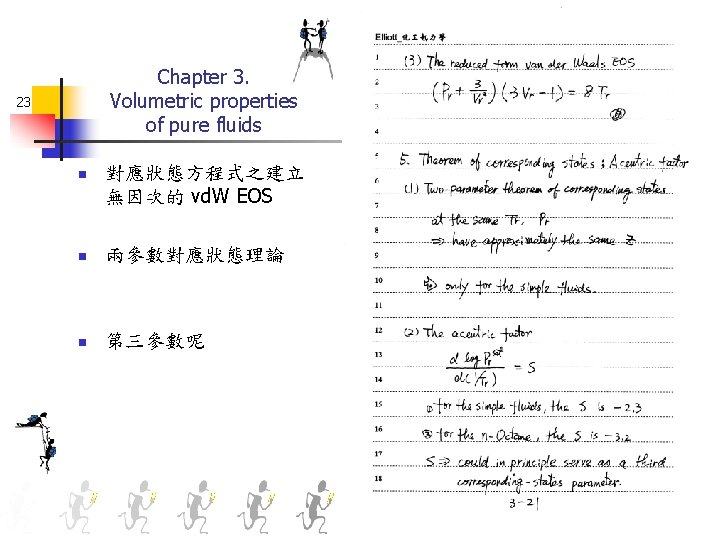 23
Chapter 3.
Volumetric properties
of pure fluids
對應狀態方程式之建立
無因次的 vd.W EOS
兩參數對應狀態理論
第三參數呢
Elliott_化工熱力學
1 (3) The reduced form van der Waals EOS
2 (Pr + 3/Vr²)(3Vr - 1) = 8 Tr
3
4
5 5. Theorem of corresponding states; Acentric factor
6 (1) Two parameter theorem of corresponding states
7 at the same Tr, Pr
8 ⇒ have approximately the same Z
9
10 only for the simple fluids.
11
12 (2) The acentric factor
13 d log Pr^sat / d(1/Tr) = S
14
15 ① for the simple fluids, the S is -2.3
16 ② for the n-Octane, the S is -3.2
17 S ⇒ could in principle serve as a third
18 corresponding-states parameter.
3-21